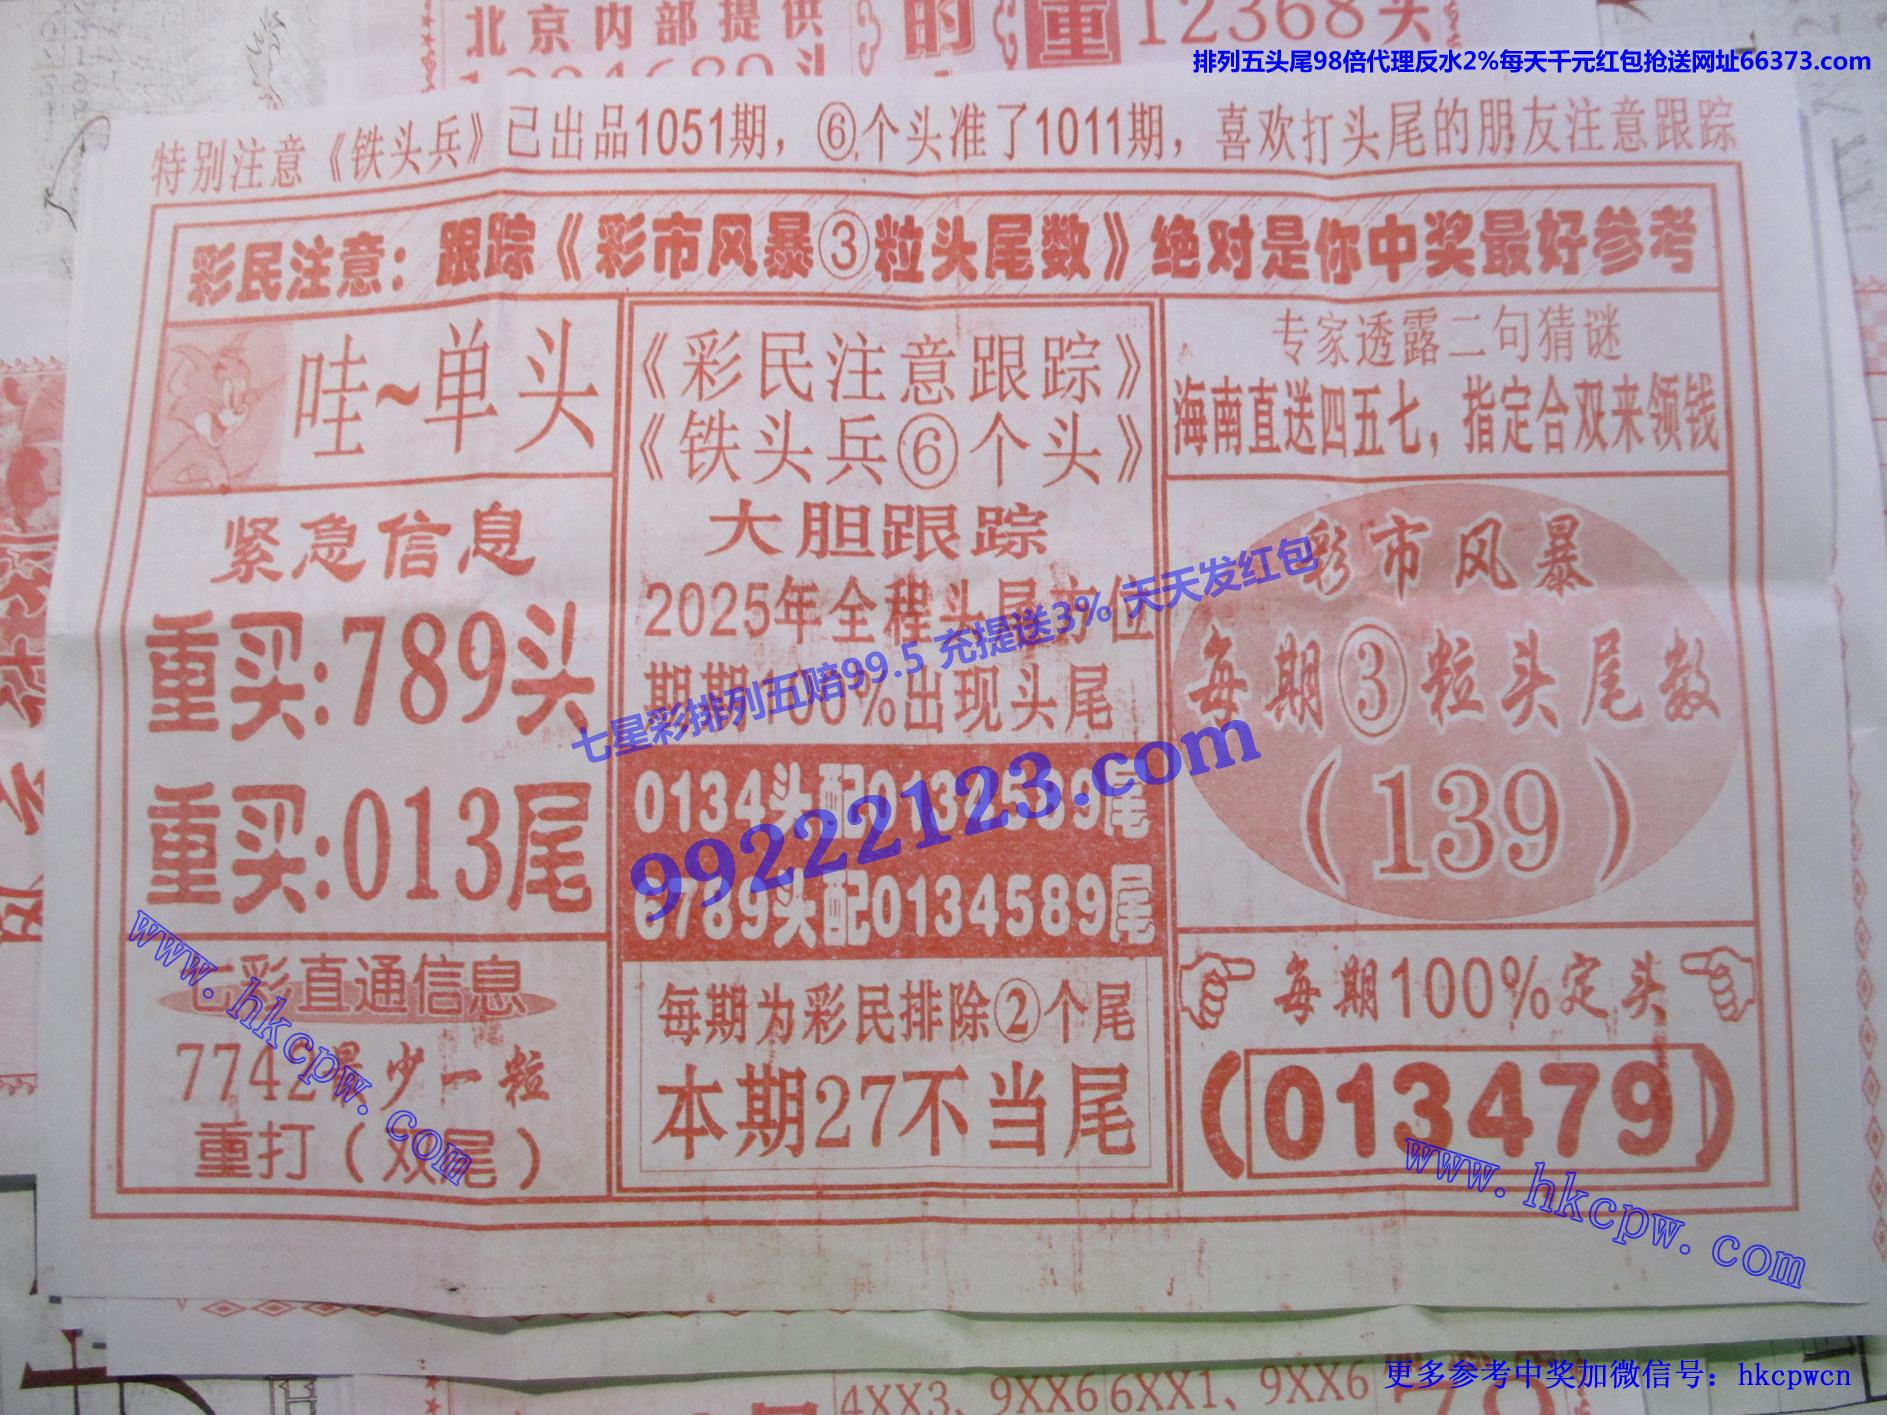 北京内部提供
的
重
12368头
排列五头尾98倍代理反水2%每天千元红包抢送网址66373.com
特别注意《铁头兵》已出品1051期，⑥个头准了1011期，喜欢打头尾的朋友注意跟踪
彩民注意：跟踪《彩市风暴③粒头尾数》绝对是你中奖最好参考
哇~单头
紧急信息
重买:789头
重买:013尾
七彩直通信息
7742最少一粒
重打（双尾）
《彩民注意跟踪》
《铁头兵⑥个头》
大胆跟踪
2025年全程头尾方位
期期100%出现头尾
0134头配0134589尾
6789头配0134589尾
每期为彩民排除②个尾
本期27不当尾
专家透露二句猜谜
海南直送四五七，指定合双来领钱
彩市风暴
每期③粒头尾数
（139）
每期100%定头
（013479）
七星彩排列五赔99.5 充提送3% 天天发红包
99222123.com
www.hkcpw.com
www.hkcpw.com
4XX3、9XX6 6XX1、9XX6
更多参考中奖加微信号：hkcpwcn